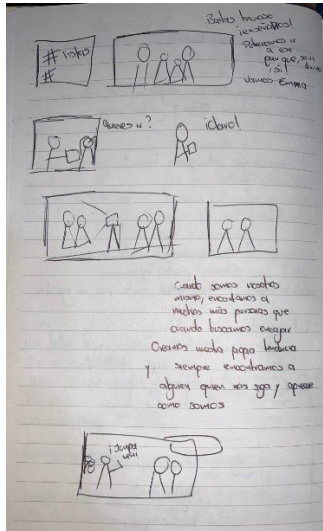 #
#
¡
Podríamos ir
a ese
parque, será
¡Sí!
Vamos Emma
Quieres ir?
¡Claro!
Cuando somos nosotros
mismo, encontramos a
muchas más personas que
cuando buscamos encajar
Creamos nuestra propia tendencia
y siempre encontramos a
alguien quien nos siga y aprecie
como somos